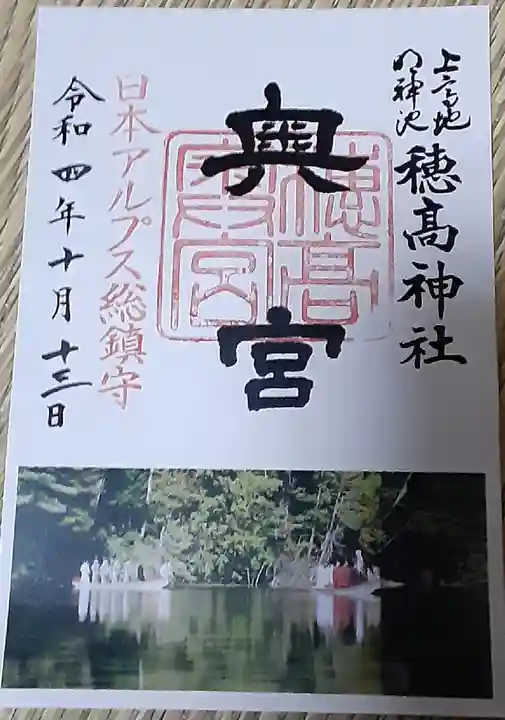 上高地
明神池
穂高神社
奥宮
穂高
奥宮
日本アルプス総鎮守
令和四年十月十三日